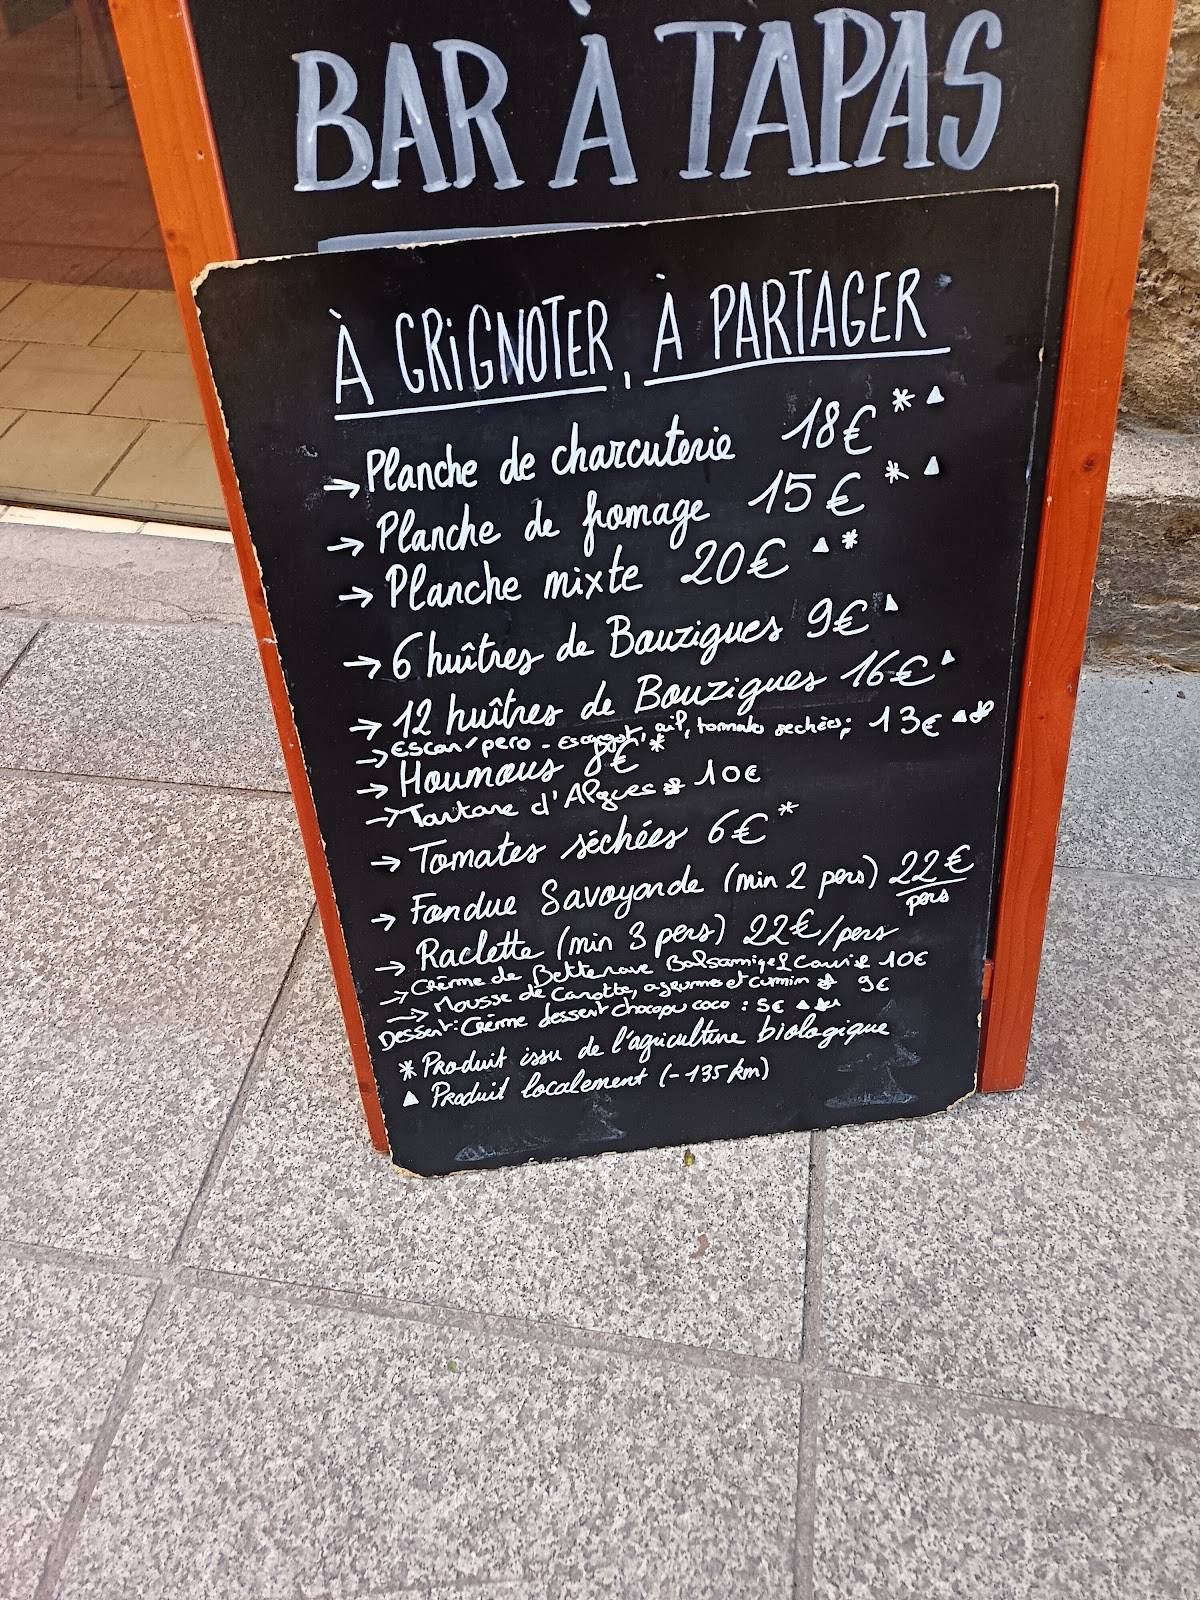 BAR À TAPAS
À GRiGNOTER, À PARTAGER
→ Planche de charcuterie 18€ * ▲
→ Planche de fromage 15€ * ▲
→ Planche mixte 20€ ▲ *
→ 6 huîtres de Bouzigues 9€ ▲
→ 12 huîtres de Bouzigues 16€ ▲
→ Escar'pero - Escargot, ail, tomates sechées; 13€ ▲ *
→ Houmous 8€ *
→ Tartare d'Algues * 10€
→ Tomates séchées 6€ *
→ Fondue Savoyarde (min 2 pers) 22€/pers
→ Raclette (min 3 pers) 22€/pers
→ Crème de Betterave Balsamiq 10€
→ Mousse de Carotte, agrumes et cumin * 9€
Dessert: Crème dessert choco coco : 5€ ▲ *
* Produit issu de l'agriculture biologique
▲ Produit localement (-135 km)